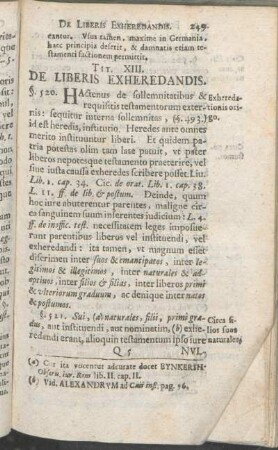 DE LIBERIS EXHEREDANDIS. 249
exercet. Vsus tamen, maxime in Germania,
haec principia deserit, & damnatis etiam te-
stamenti factionem permittit.
TIT. XIII.
DE LIBERIS EXHEREDANDIS.
§. 520. HActenus de sollemnitatibus &
requisitis testamentorum exter-
nis: sequitur interna sollemnitas, (§. 493.)
id est heredis, institutio. Heredes ante omnes
merito instituuntur liberi. Et quidem pa-
tria potestas olim tam late patuit, vt pater
liberos nepotesque testamento praeterire, vel
sine iusta causa exheredes scribere posset. Liu.
Lib. 1. cap. 34. Cic. de orat. Lib. 1. cap. 38.
L. 11. ff. de lib. & postum. Deinde, quum
hoc iure abuterentur parentes, maligne cir-
ca sanguinem suum inferentes iudicium: L. 4.
ff. de inoffic. test. necessitatem leges imposue-
runt parentibus liberos vel instituendi, vel
exheredandi: ita tamen, vt magnum esset
discrimen inter suos & emancipatos, inter le-
gitimos & illegitimos, inter naturales & ad-
optiuos, inter filios & filias, inter liberos primi
& vlteriorum graduum, ac denique inter natos
& postumos.
Exhereda-
tionis ori-
go.
§. 521. Sui, (a) naturales, filii, primi gra-
dus, aut instituendi, aut nominatim, (b) exhe-
redandi erant, alioquin testamentum ipso iure
Circa fi-
lios suos
naturales;
Q 5 NVL-
(a) Cur ita vocentur adcurate docet BYNKERSH.
Obseru. iur. Rom lib. II. cap. II.
(b) Vid. ALEXANDRVM ad Caii inst. pag. 96.